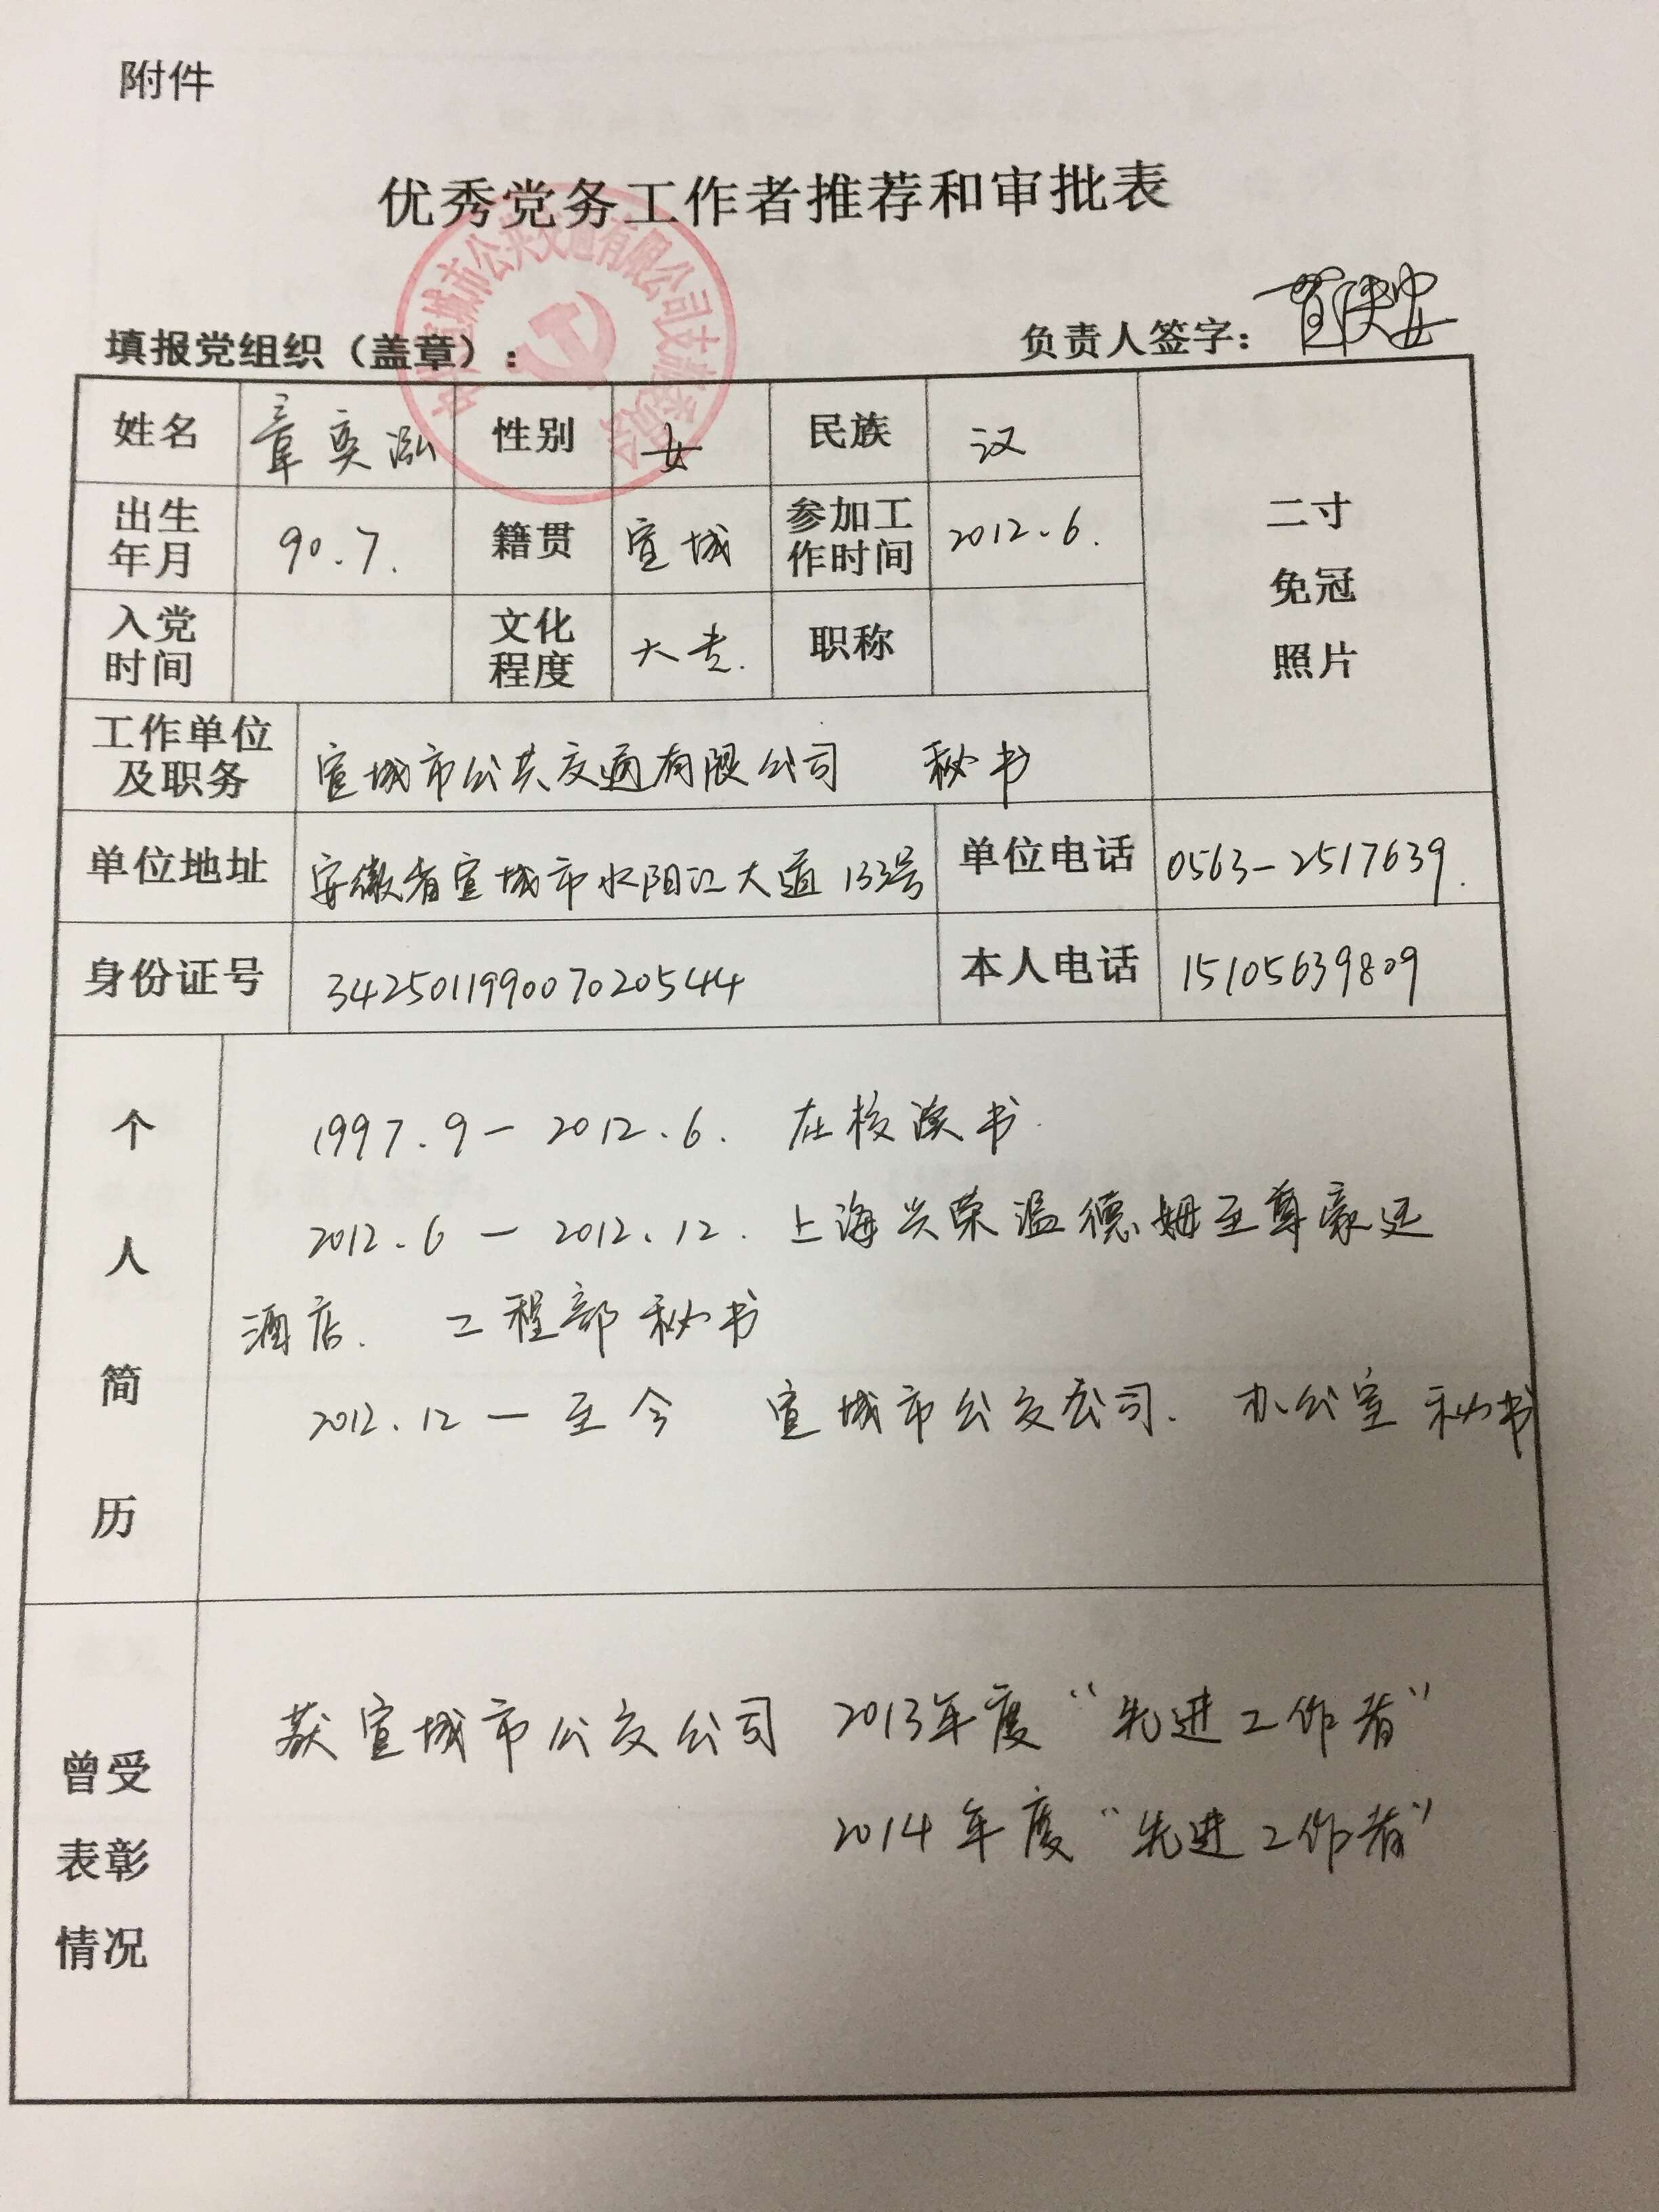 附件
优秀党务工作者推荐和审批表
中共宣城市公共交通有限公司支部委员会
填报党组织（盖章）：
负责人签字：
姓名 章奕泓 性别 女 民族 汉
出生年月 90.7. 籍贯 宣城 参加工作时间 2012.6.
二寸
免冠
照片
入党时间 文化程度 大专. 职称
工作单位及职务 宣城市公共交通有限公司 秘书
单位地址 安徽省宣城市水阳江大道133号 单位电话 0563-2517639.
身份证号 342501199007020544 本人电话 15105639809
个人简历
1997.9－2012.6. 在校读书.
2012.6－2012.12. 上海兴荣温德姆至尊豪廷
酒店. 工程部秘书
2012.12－至今 宣城市公交公司. 办公室秘书
曾受
表彰
情况
获宣城市公交公司 2013年度“先进工作者”
2014年度“先进工作者”